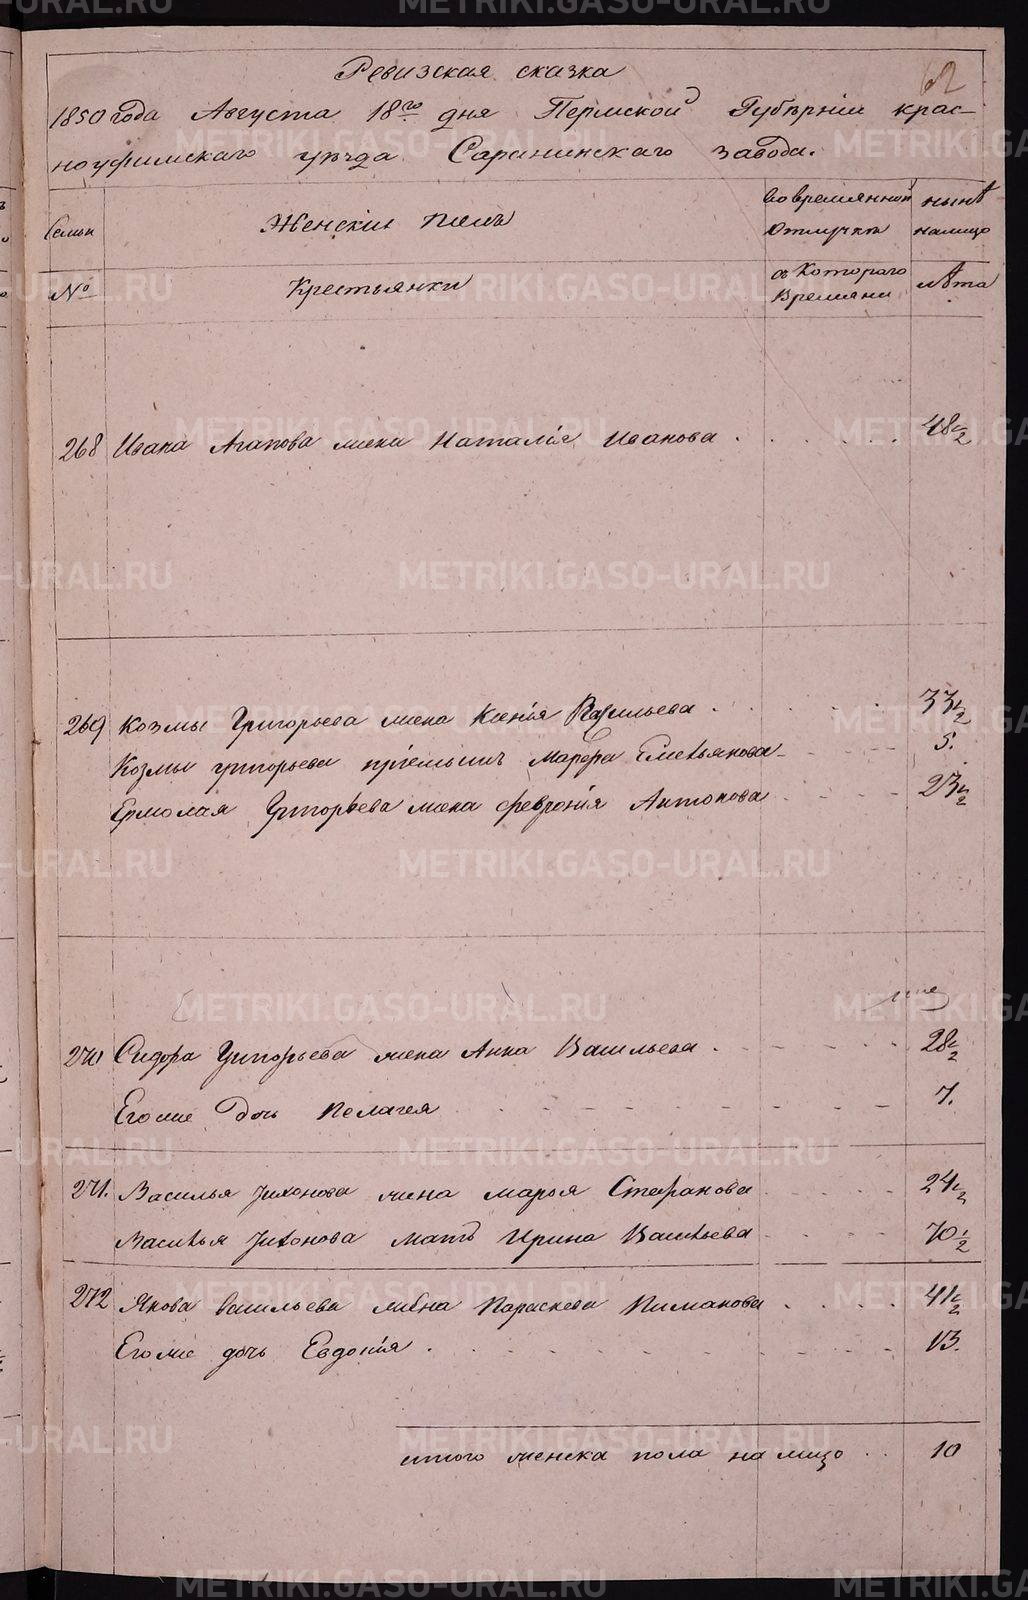 62
Ревизская сказка
1850 года Августа 18го дня Пермской Губернии крас-
ноуфимскаго уезда Саранинскаго завода.
Семьи
Женский полъ
во временной отлучкѣ
нынѣ налицо
№
Крестьянки
съ Котораго Времяни
лѣта
268 Ивана Агапова жена Наталiя Иванова 48 1/2
269 Козмы Григорьева жена Ксенiя Васильева 33 1/2
Козмы григорьева прiемышъ Марфа Емельянова 5.
Ермолая Григорьева жена феврония Антонова 23 1/2
270 Сидора Григорьева жена Анна Васильева 28 1/2
Егоже дочь Пелагея 7.
271. Василья Тихонова жена марья Стефанова 24 1/2
Василья Тихонова мать Ирина Васильева 70 1/2
272 Якова васильева жена Параскева Пиманова 41 1/2
Егоже дочь Евдокiя 13.
итого женска пола на лицо 10
METRIKI.GASO-URAL.RU